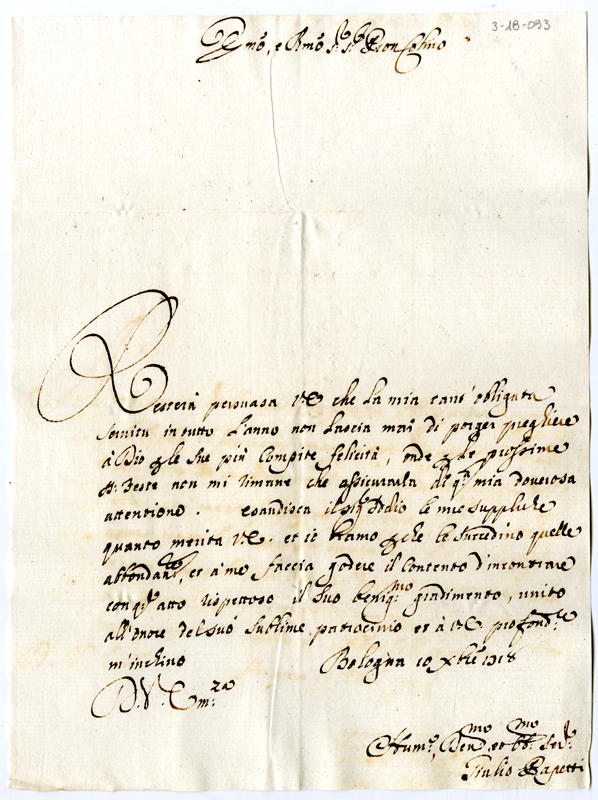 3-18-093
Emo, e Rmo Sr. Sr. Pron Colmo
Resterà persuasa V.E. che la mia tant' obligata
servitù in tutto l'anno non lascia mai di porger preghiere
à Dio per le sue più Compite felicità, onde per le prossime
Ste. Feste non mi rimane che assicurarla di qta. mia doverosa
attentione. Esaudisca il Sig. Iddio le mie suppliche
quanto merita V.E. et io bramo perche le succedino quelle
abbondanti, et à me faccia godere il Contento d'incontrare
con qto. atto rispettoso il suo benigmo gradimento, unito
all'onore del suo sublime patrocinio et à V.E. profondte.
m'inchino Bologna 10 Xbre 1718
D. V. Emza
Humo. Devmo. et Obmo. Servre.
Giulio Rapetti